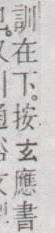 訓在下。按玄應書